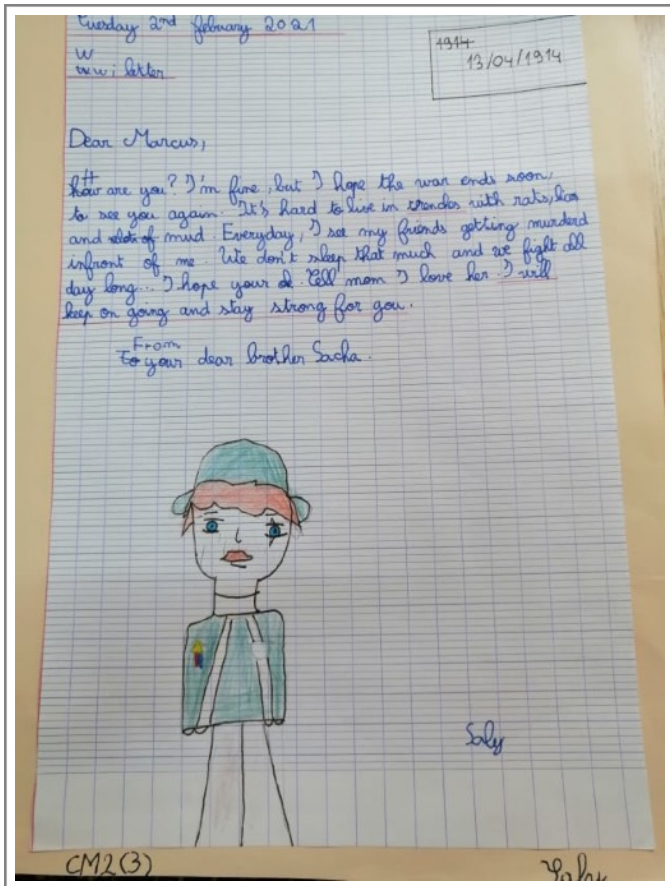 Tuesday 2nd february 2021
W
ww1 letter
1914
13/04/1914
Dear Marcus,
H
how are you? I'm fine, but I hope the war ends soon,
to see you again. It's hard to live in trenches with rats, lice
and alot of mud. Everyday, I see my friends getting murderd
infront of me. We don't sleep that much and we fight all
day long... I hope your ok. Tell mom I love her. I will
keep on going and stay strong for you.
From
To your dear brother Sacha.
Saly
CM2(3)
Saly